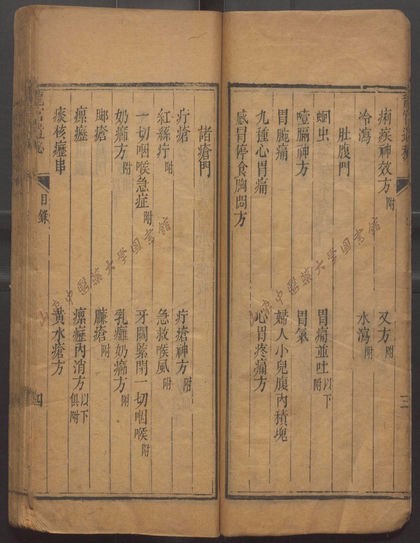 痢疾神效方附 又方附
冷瀉 水瀉附
肚腹門
蛔虫 胃痛並吐以下附
噎膈神方 胃氣
胃脘痛 婦人小兒腹內積塊
九種心胃痛 心胃疼痛方
感冒停食胸悶方
三
諸瘡門
疔瘡 疔瘡神方附
紅絲疔附 急救喉風附
一切咽喉急症附 牙關緊閉一切咽喉附
奶癰方附 乳癰奶癰方附
臁瘡附
瘰癧 瘰癧內消方以下俱附
痰核癧串 黃水瘡方
目錄
四
中醫藥大學圖書館
中醫藥大學圖書館